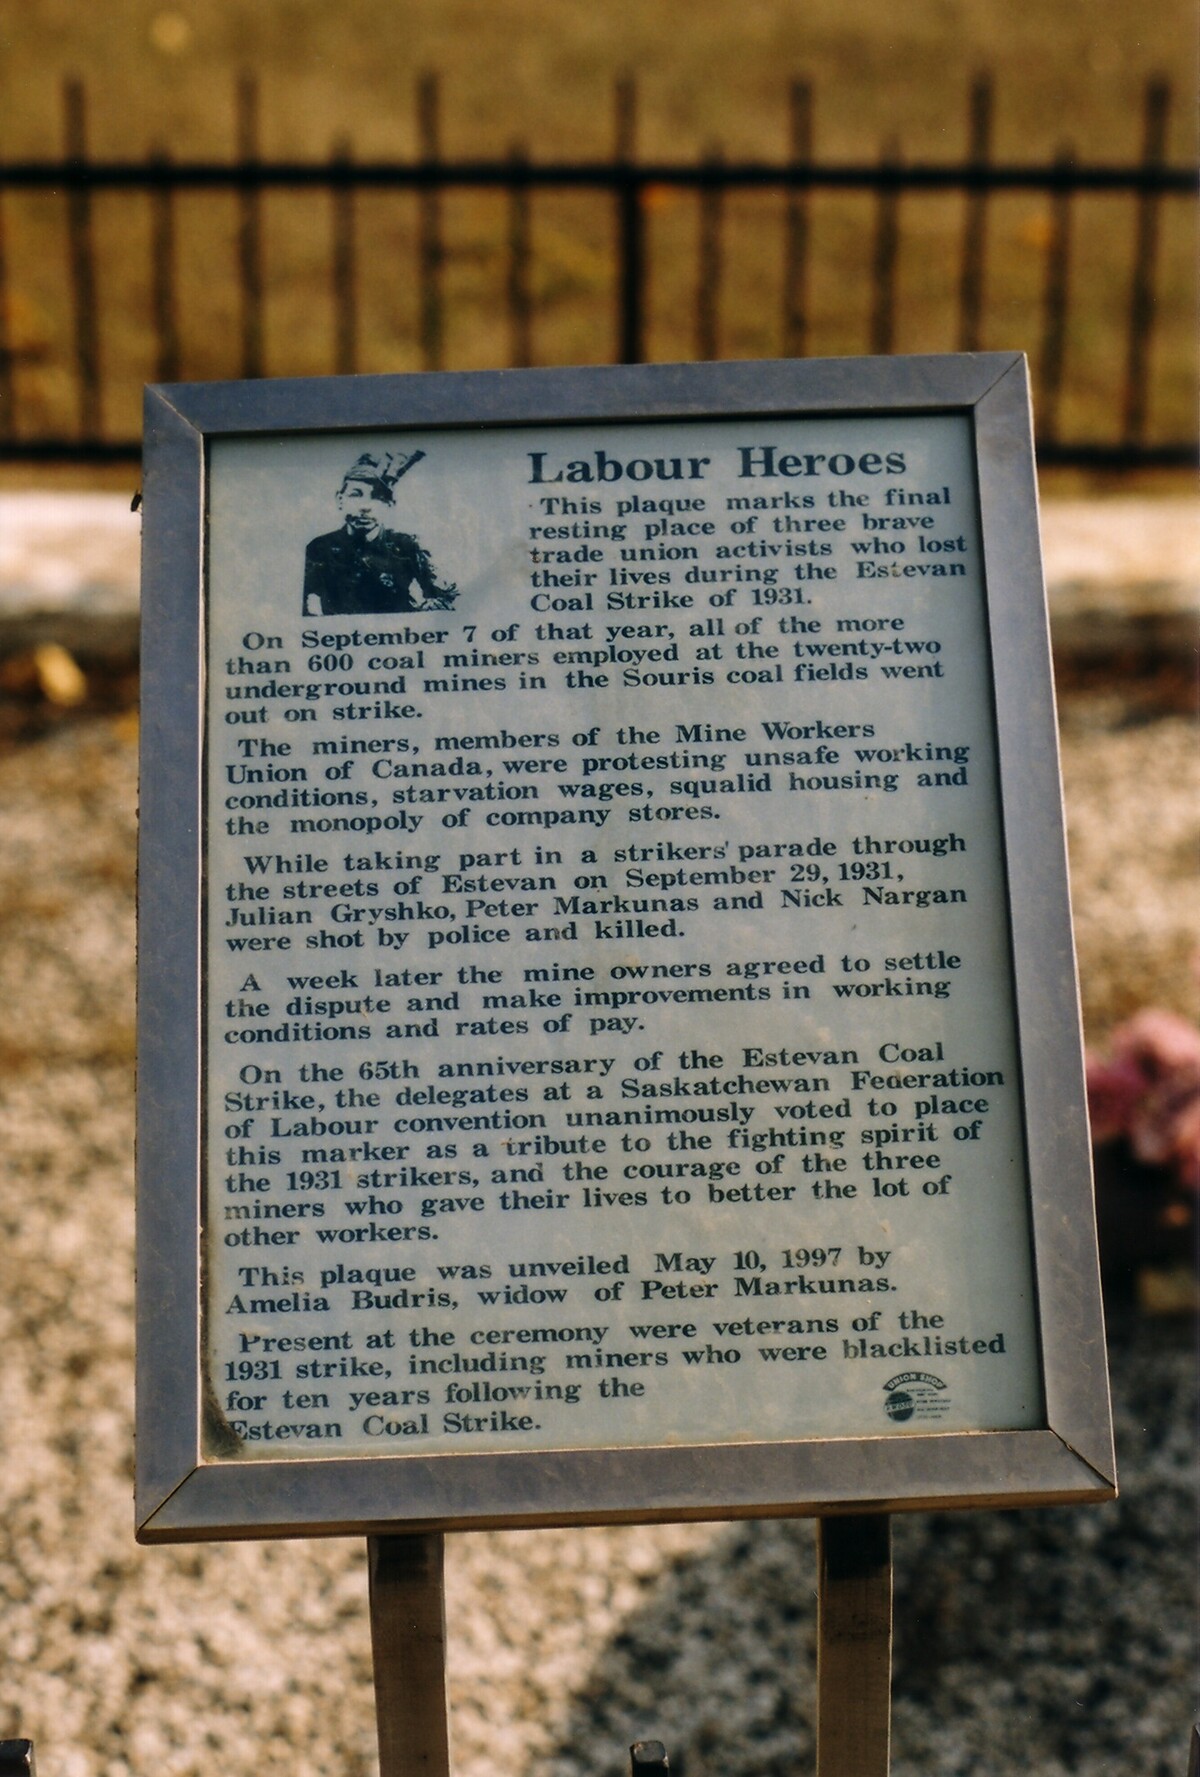 Labour Heroes
This plaque marks the final
resting place of three brave
trade union activists who lost
their lives during the Estevan
Coal Strike of 1931.
On September 7 of that year, all of the more
than 600 coal miners employed at the twenty-two
underground mines in the Souris coal fields went
out on strike.
The miners, members of the Mine Workers
Union of Canada, were protesting unsafe working
conditions, starvation wages, squalid housing and
the monopoly of company stores.
While taking part in a strikers' parade through
the streets of Estevan on September 29, 1931,
Julian Gryshko, Peter Markunas and Nick Nargan
were shot by police and killed.
A week later the mine owners agreed to settle
the dispute and make improvements in working
conditions and rates of pay.
On the 65th anniversary of the Estevan Coal
Strike, the delegates at a Saskatchewan Federation
of Labour convention unanimously voted to place
this marker as a tribute to the fighting spirit of
the 1931 strikers, and the courage of the three
miners who gave their lives to better the lot of
other workers.
This plaque was unveiled May 10, 1997 by
Amelia Budris, widow of Peter Markunas.
Present at the ceremony were veterans of the
1931 strike, including miners who were blacklisted
for ten years following the
Estevan Coal Strike.
UNION SHOP